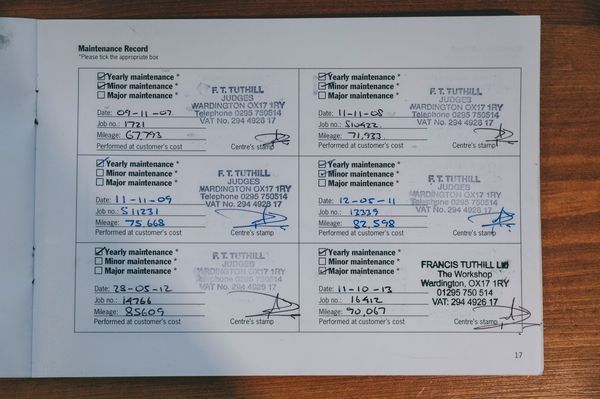 Maintenance Record
*Please tick the appropriate box
Yearly maintenance *
Minor maintenance *
Major maintenance *
F. T. TUTHILL
JUDGES
WARDINGTON OX17 1RY
Telephone 0295 750514
VAT No. 294 4928 17
Date: 09-11-07
Job no.: 1721
Mileage: 67,793
Performed at customer's cost
Centre's stamp
Yearly maintenance *
Minor maintenance *
Major maintenance *
F. T. TUTHILL
JUDGES
WARDINGTON OX17 1RY
Telephone 0295 750514
VAT No. 294 4928 17
Date: 11-11-08
Job no.: S10422
Mileage: 71,933
Performed at customer's cost
Centre's stamp
Yearly maintenance *
Minor maintenance *
Major maintenance *
F. T. TUTHILL
JUDGES
WARDINGTON OX17 1RY
Telephone 0295 750514
VAT No. 294 4928 17
Date: 11-11-09
Job no.: S11231
Mileage: 75,668
Performed at customer's cost
Centre's stamp
Yearly maintenance *
Minor maintenance *
Major maintenance *
F. T. TUTHILL
JUDGES
WARDINGTON OX17 1RY
Telephone 0295 750514
VAT No. 294 4928 17
Date: 12-05-11
Job no.: 12339
Mileage: 82,598
Performed at customer's cost
Centre's stamp
Yearly maintenance *
Minor maintenance *
Major maintenance *
F. T. TUTHILL
JUDGES
WARDINGTON OX17 1RY
Telephone 0295 750514
VAT No. 294 4928 17
Date: 28-05-12
Job no.: 14766
Mileage: 85609
Performed at customer's cost
Centre's stamp
Yearly maintenance *
Minor maintenance *
Major maintenance *
FRANCIS TUTHILL LTD
The Workshop
Wardington, OX17 1RY
01295 750 514
VAT: 294 4926 17
Date: 11-10-13
Job no.: 16412
Mileage: 90,067
Performed at customer's cost
Centre's stamp
17